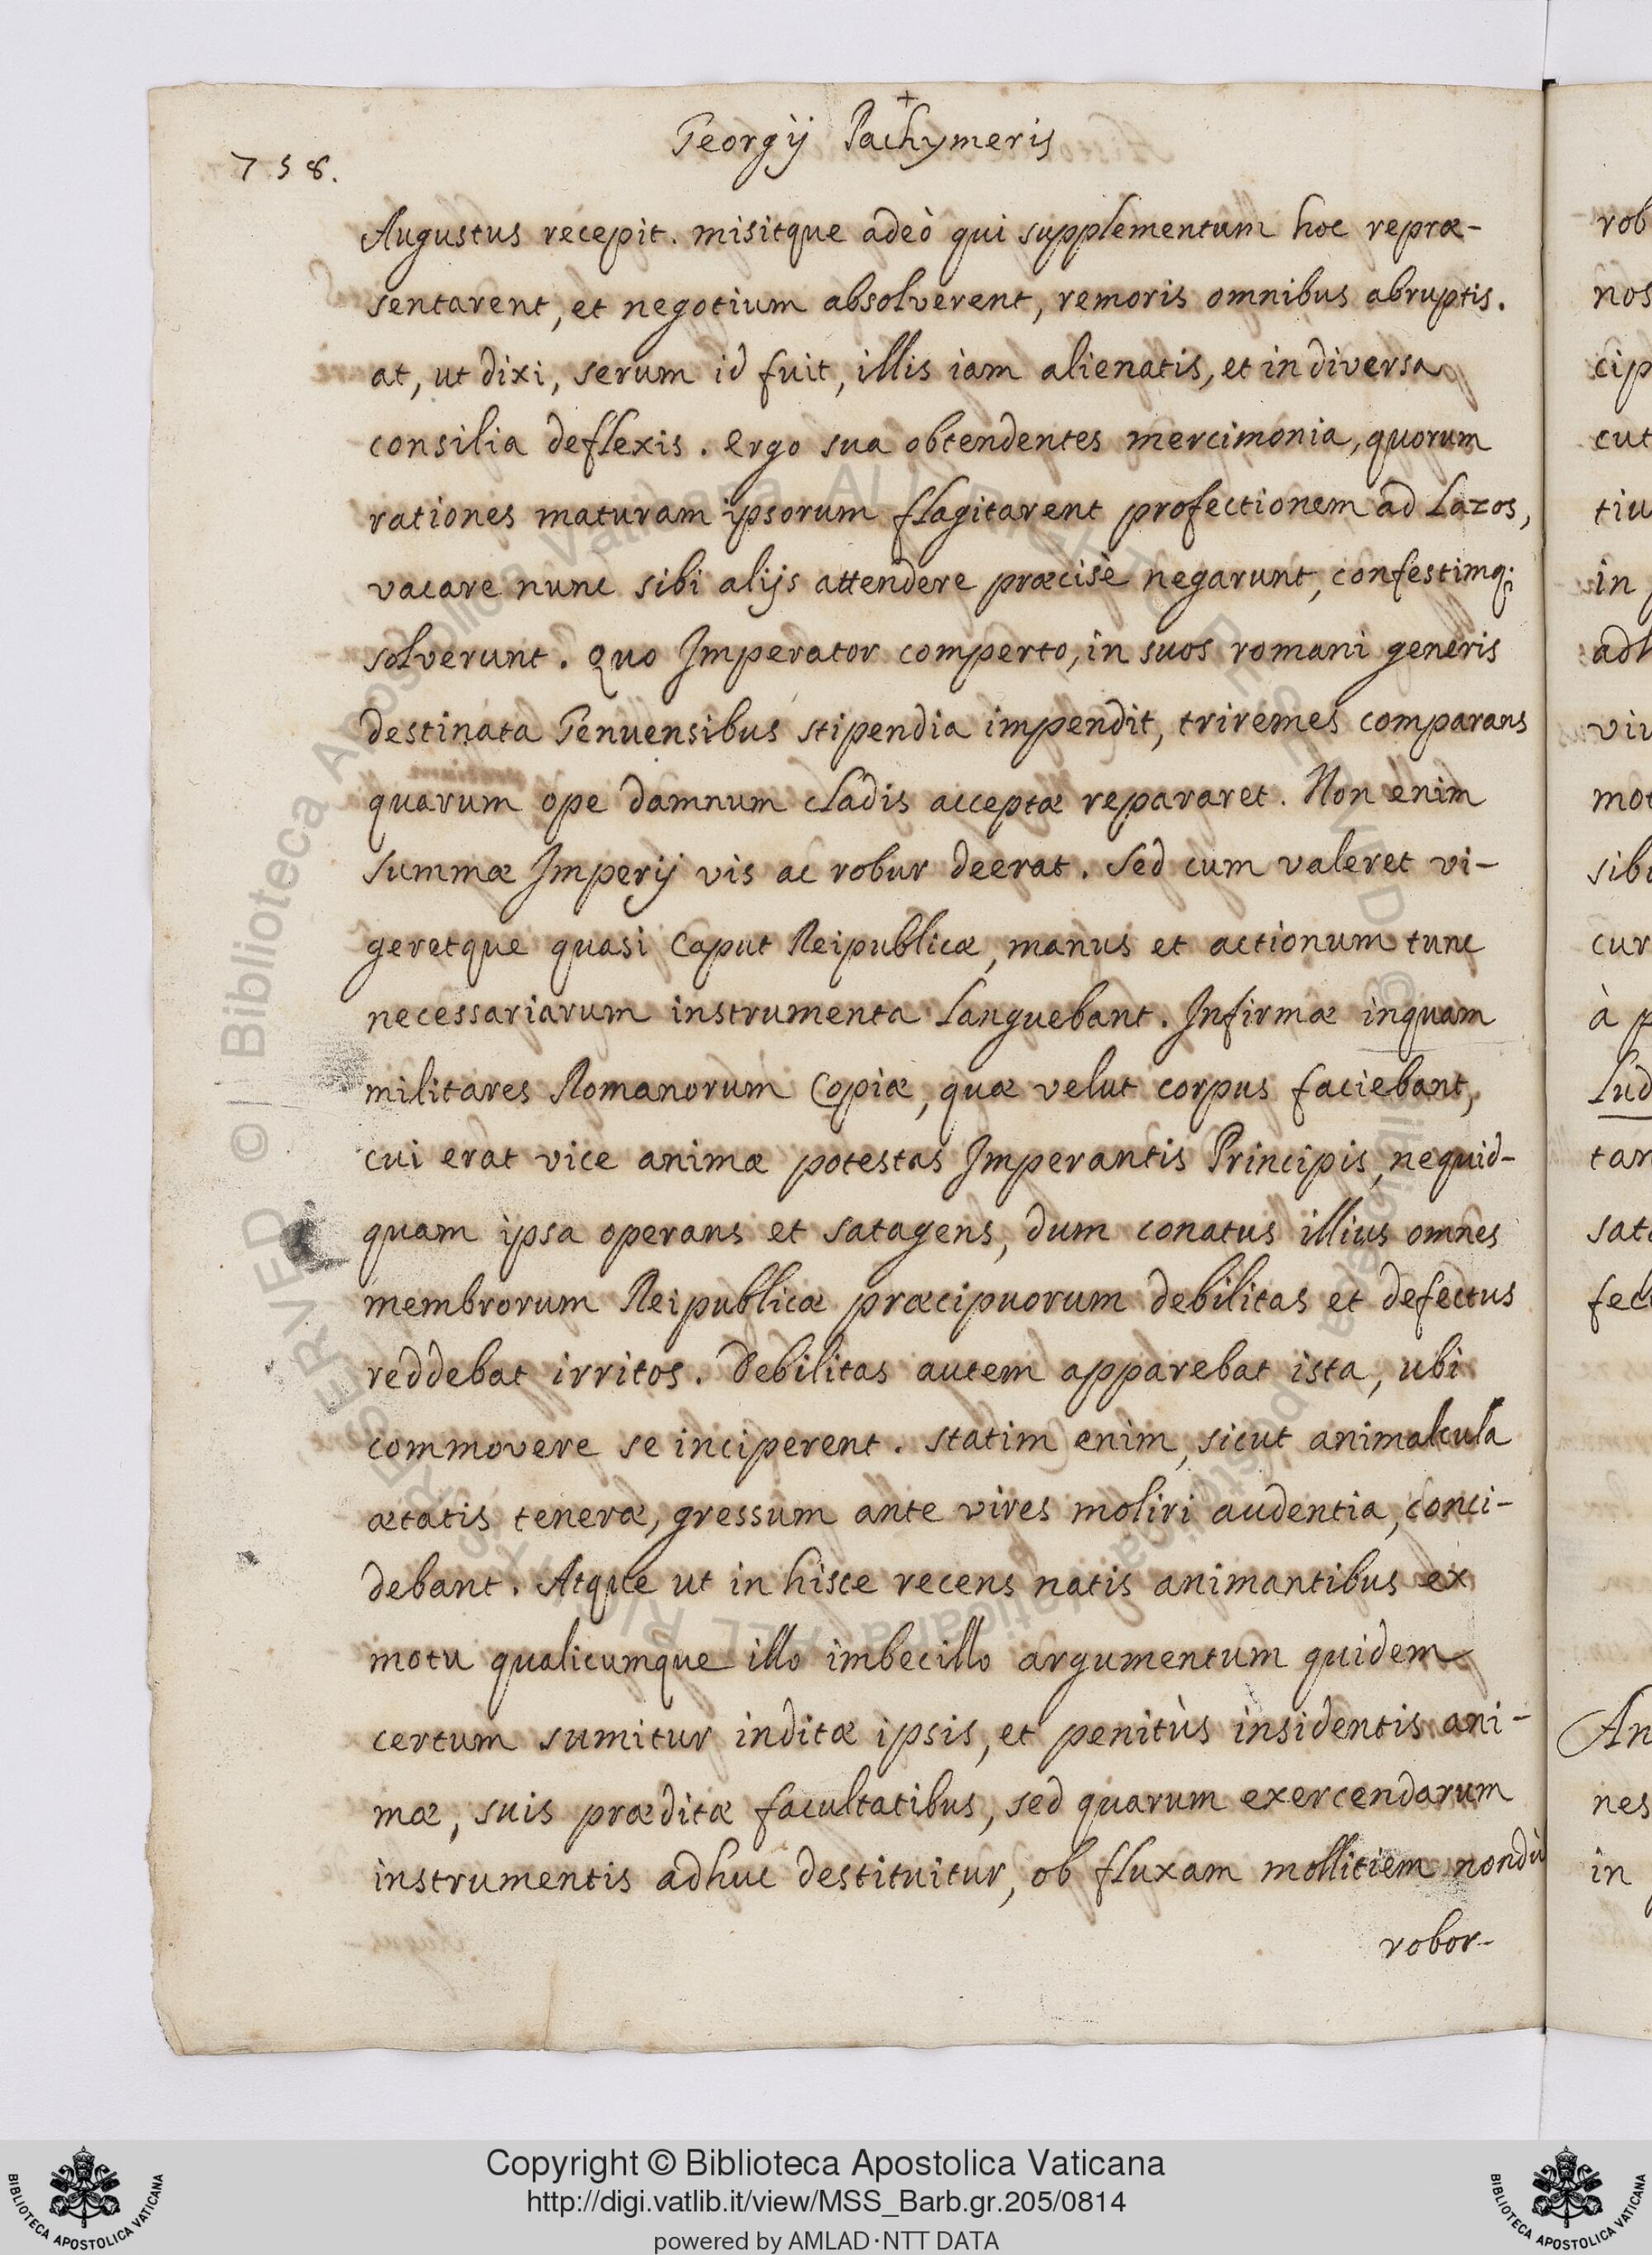 Georgij Pachymeris
758.
Augustus recepit. misitque adeò qui supplementum hoc repræ-
sentarent, et negotium absolverent, remoris omnibus abruptis.
at, ut dixi, serum id fuit, illis iam alienatis, et in diversa
consilia deflexis. ergo sua obtendentes mercimonia, quorum
rationes maturam ipsorum flagitarent profectionem ad Lazos,
vacare nunc sibi alijs attendere præcisè negarunt, confestimq;
solverunt. Quo Imperator comperto, in suos romani generis
destinata Genuensibus stipendia impendit, triremes comparans
quarum ope damnum cladis acceptæ repararet. Non enim
summæ Imperij vis ac robur deerat. Sed cum valeret vi-
geretque quasi Caput Reipublicæ, manus et actionum tunc
necessariarum instrumenta Languebant. Infirmæ inquam
militares Romanorum Copiæ, quæ velut corpus faciebant,
cui erat vice animæ potestas Imperantis Principis, nequid-
quam ipsa operans et satagens, dum conatus illius omnes
membrorum Reipublicæ præcipuorum debilitas et defectus
reddebat irritos. Debilitas autem apparebat ista, ubi
commovere se inciperent. statim enim, sicut animalcula
ætatis teneræ, gressum ante vires moliri audentia, conci-
debant. Atque ut in hisce recens natis animantibus ex
motu qualicumque illo imbecillo argumentum quidem
certum sumitur inditæ ipsis, et penitùs insidentis ani-
mæ, suis præditæ facultatibus, sed quarum exercendarum
instrumentis adhuc destituitur, ob fluxam mollitiem nondū
robor-
rob
nos
cip
cut
tiu
in
adh
viv
mot
sibi
cur
à p
Lud
tar
sata
fec
An
nes
in
© | Biblioteca Apostolica Vaticana ALL RIGHTS RESERVED
Copyright © Biblioteca Apostolica Vaticana
http://digi.vatlib.it/view/MSS_Barb.gr.205/0814
powered by AMLAD·NTT DATA
BIBLIOTECA APOSTOLICA VATICANA
BIBLIOTECA APOSTOLICA VATICANA